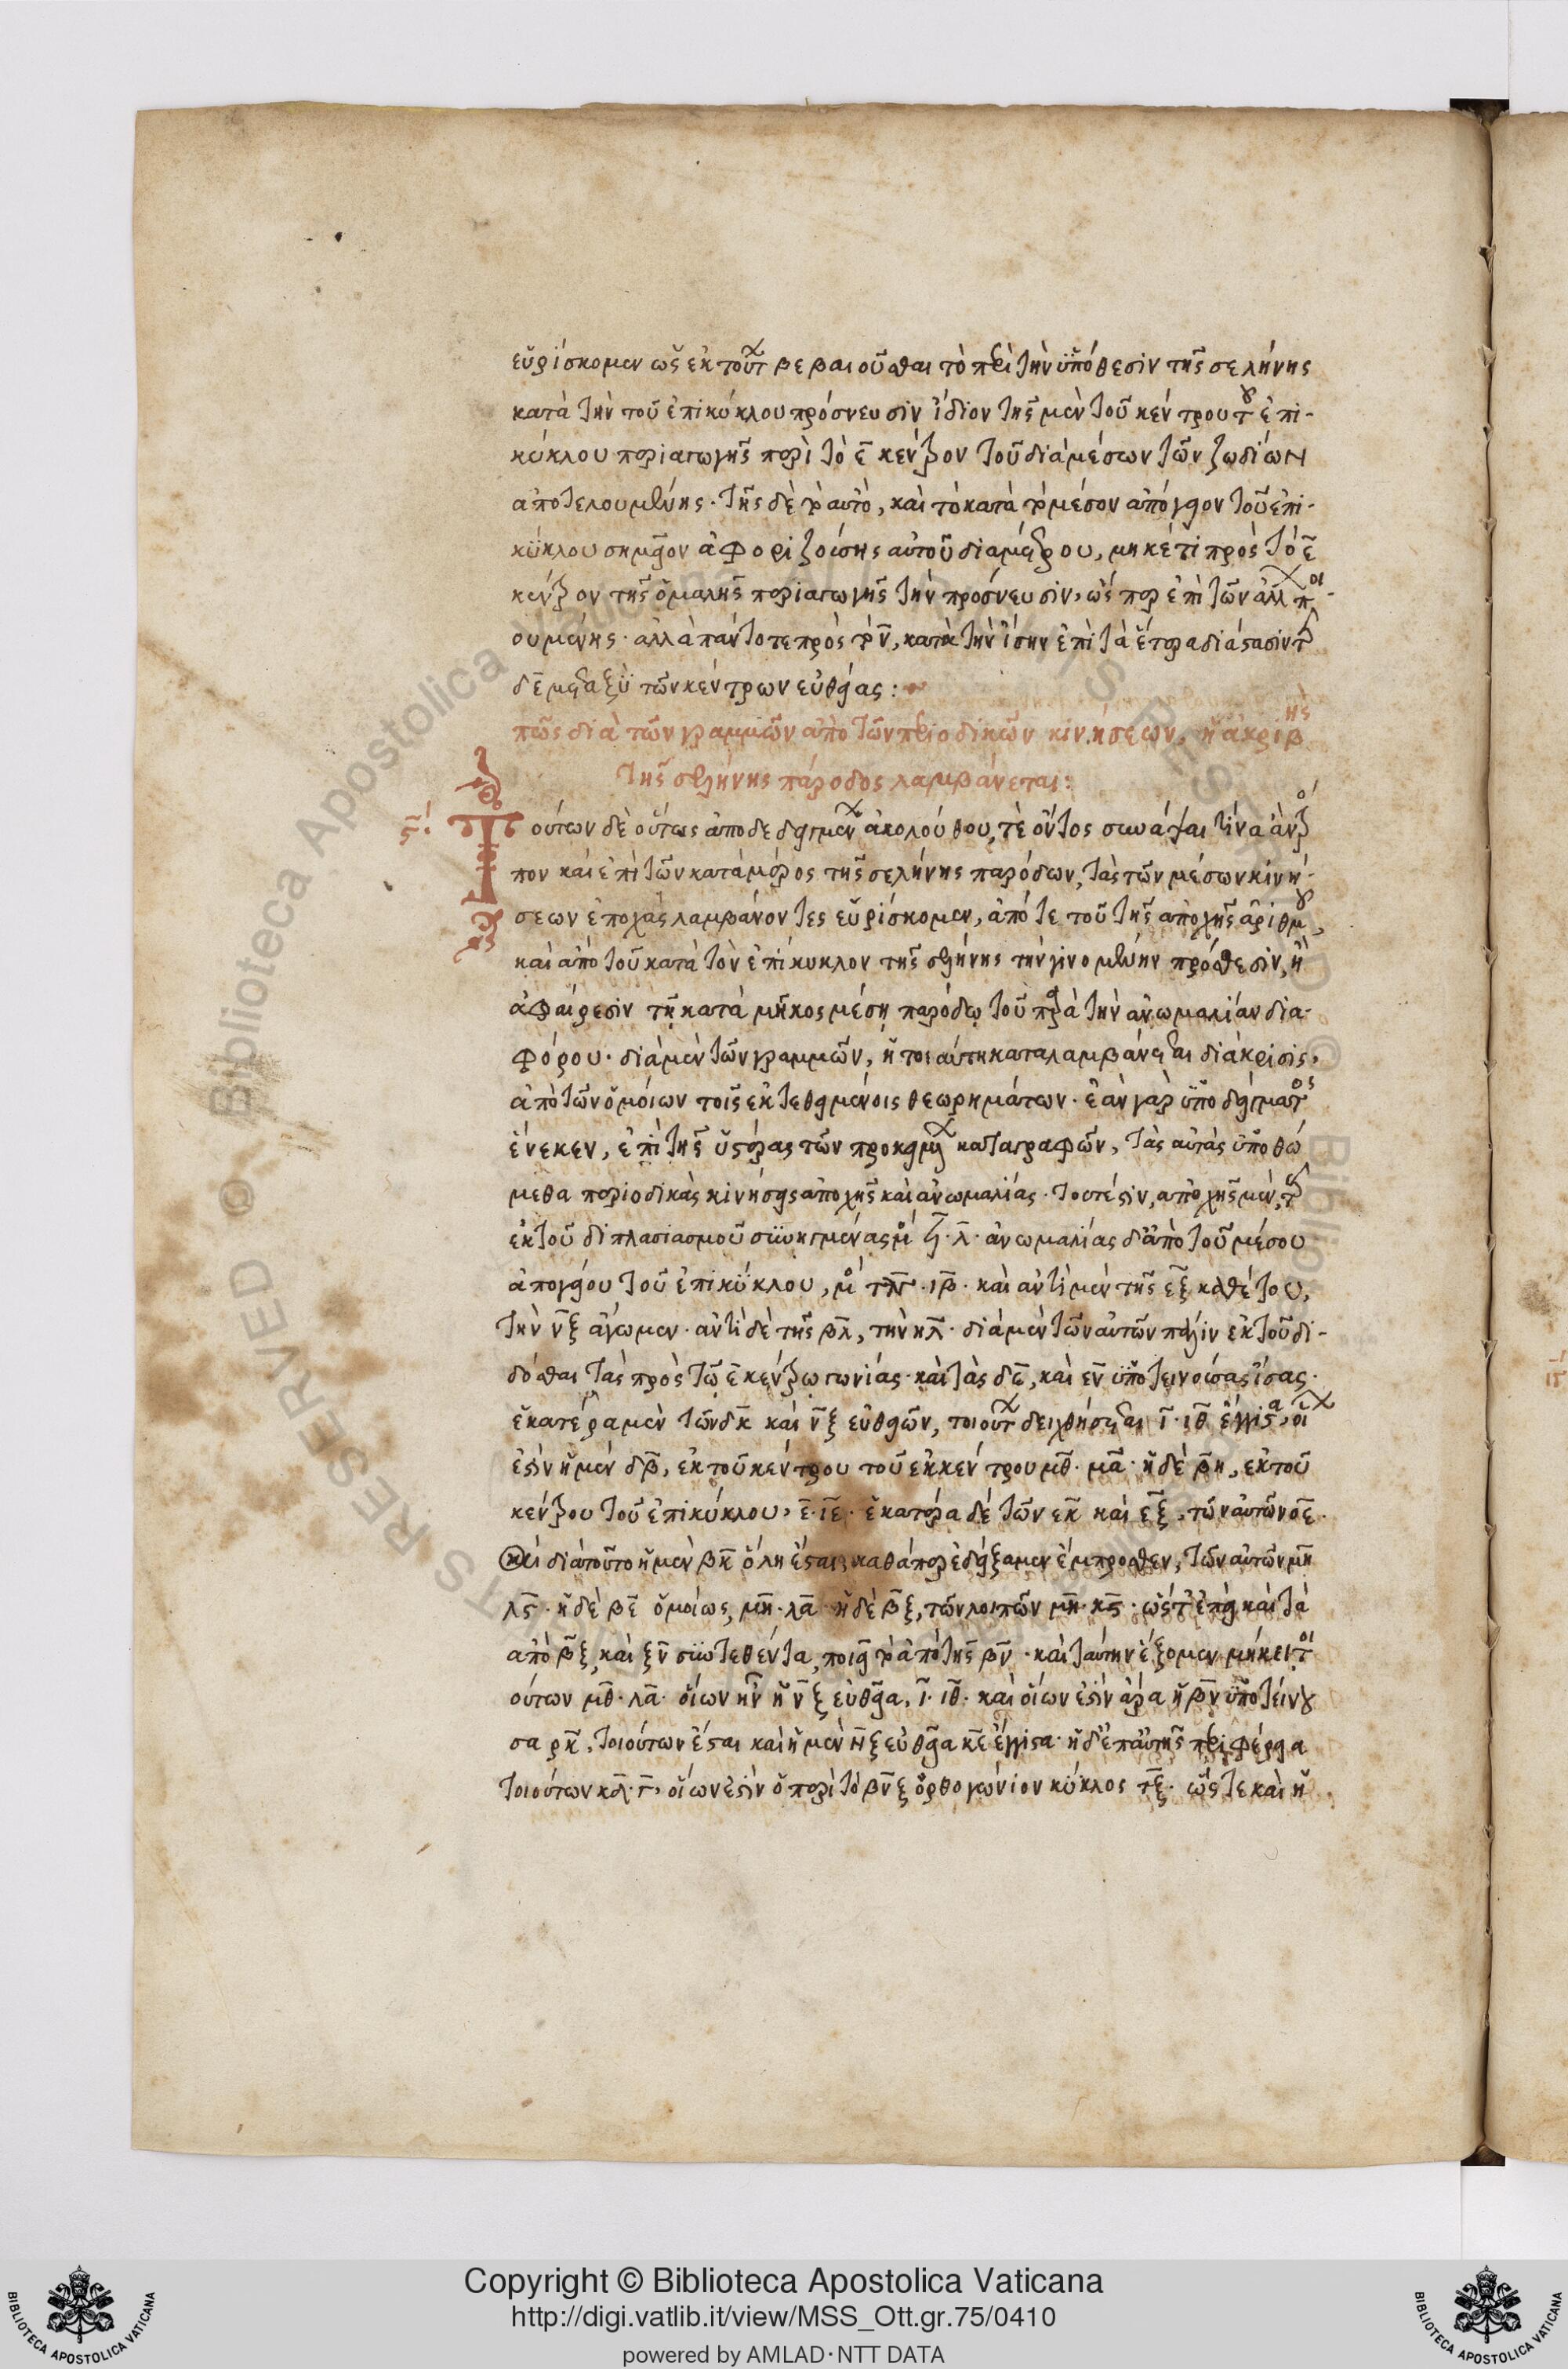 εὑρίσκομεν ὡς ἐκ τούτ βεβαιοῦσθαι τὸ περὶ τὴν ὑπόθεσιν τῆς σελήνης
κατὰ τὴν τοῦ ἐπικύκλου πρόσνευσιν ἴδιον τῆς μὲν τοῦ κέντρου τ ἐπι-
κύκλου περιαγωγῆς περὶ τὸ ε κέντρον τοῦ διὰ μέσων τῶν ζωδίων
ἀποτελουμένης· τῆς δὲ τὸ αὐτὸ, καὶ τὸ κατὰ τὸ μέσον ἀπόγειον τοῦ ἐπι-
κύκλου σημεῖον ἀφοριζούσης αὐτοῦ διαμέτρου, μηκέτι πρὸς τὸ ε
κέντρον τῆς ὁμαλῆς περιαγωγῆς τὴν πρόσνευσιν, ὥσπερ ἐπὶ τῶν ἀλλ ποι-
ουμένης· ἀλλὰ πάντοτε πρὸς τὸ ν, κατὰ τὴν ἴσην ἐπὶ τὰ ἕτερα διάστασιν τ
δε μεταξὺ τῶν κέντρων εὐθείας:
πῶς διὰ τῶν γραμμῶν ἀπὸ τῶν περιοδικῶν κινήσεων, ἡ ἀκριβης
τῆς σελήνης πάροδος λαμβάνεται:
ς Τούτων δὲ οὕτως ἀποδεδειγμεν ἀκολούθου τὲ ὄντος συνάψαι τίνα ἂν τρό
πον καὶ ἐπὶ τῶν κατὰ μέρος τῆς σελήνης παρόδων, τὰς τῶν μέσων κινή-
σεων ἐποχὰς λαμβάνοντες εὑρίσκομεν, ἀπό τε τοῦ τῆς ἀποχῆς ἀριθμοῦ,
καὶ ἀπὸ τοῦ κατὰ τὸν ἐπίκυκλον τῆς σελήνης τὴν γινομένην πρόσθεσιν, ἢ
ἀφαίρεσιν τῇ κατὰ μῆκος μέσῃ παρόδῳ τοῦ παρὰ τὴν ἀνωμαλίαν δια-
φόρου· διὰ μὲν τῶν γραμμῶν, ἡ τοιαύτη καταλαμβάνεται διάκρισις,
ἀπὸ τῶν ὁμοίων τοῖς ἐκτεθειμένοις θεωρημάτων· ἐὰν γὰρ ὑποδείγματος
ἕνεκεν, ἐπὶ τῆς ὑστέρας τῶν προκειμ καταγραφῶν, τὰς αὐτὰς ὑποθώ
μεθα περιοδικὰς κινήσεις ἀποχῆς καὶ ἀνωμαλίας· τουτέστιν, ἀποχῆς μὲν, τ
ἐκ τοῦ διπλασιασμοῦ συνηγμένας μο ϟ· λ· ἀνωμαλίας δ' ἀπὸ τοῦ μέσου
ἀπογείου τοῦ ἐπικύκλου, μο τλγ· ιβ· καὶ ἀντὶ μὲν τῆς εξ καθέτου,
τὴν νξ ἄγωμεν· ἀντὶ δὲ τῆς βλ, τὴν ηλ· διὰ μὲν τῶν αὐτῶν πάλιν ἐκ τοῦ δί-
δοσθαι τὰς πρὸς τῷ ε κέντρῳ γωνίας· καὶ τὰς δε, καὶ εν ὑποτεινούσας ἴσας·
ἑκατέρα μὲν τῶν δκ καὶ νξ εὐθειῶν, τοιούτ δειχθήσεται ι· ιθ ἔγγιστα, οἵ
ἐστὶν ἡ μὲν δβ, ἐκ τοῦ κέντρου τοῦ ἐκκέντρου μθ· μα· ἡ δὲ βη, ἐκ τοῦ
κέντρου τοῦ ἐπικύκλου, ε· ιε· ἑκατέρα δὲ τῶν εκ καὶ εξ, τῶν αὐτῶν ο ε·
καὶ διὰ τοῦτο ἡ μὲν βκ ὅλη ἔσται, καθάπερ ἐδείξαμεν ἔμπροσθεν, τῶν αὐτῶν μη
λς· ἡ δὲ βε ὁμοίως, μη· λα· ἡ δὲ βξ, τῶν λοιπῶν μη· κς· ὥστ' ἐπεὶ καὶ τὰ
ἀπὸ βξ, καὶ ξν συντεθέντα, ποιεῖ τὸ ἀπὸ τῆς βν· καὶ ταύτην ἕξομεν μήκει τοι
ούτων μθ· λα· οἵων ἦν ἡ νξ εὐθεῖα, ι· ιθ· καὶ οἵων ἐστὶν ἄρα ἡ βν ὑποτείνου
σα ρκ, τοιούτων ἔσται καὶ ἡ μὲν νξ εὐθεῖα κε ἔγγιστα· ἡ δ' ἐπ' αὐτῆς περιφέρεια
τοιούτων κδ· γ, οἵων ἐστὶν ὁ περὶ τὸ βνξ ὀρθογώνιον κύκλος τξ· ὥστε καὶ ἡ
Copyright © Biblioteca Apostolica Vaticana
http://digi.vatlib.it/view/MSS_Ott.gr.75/0410
powered by AMLAD·NTT DATA